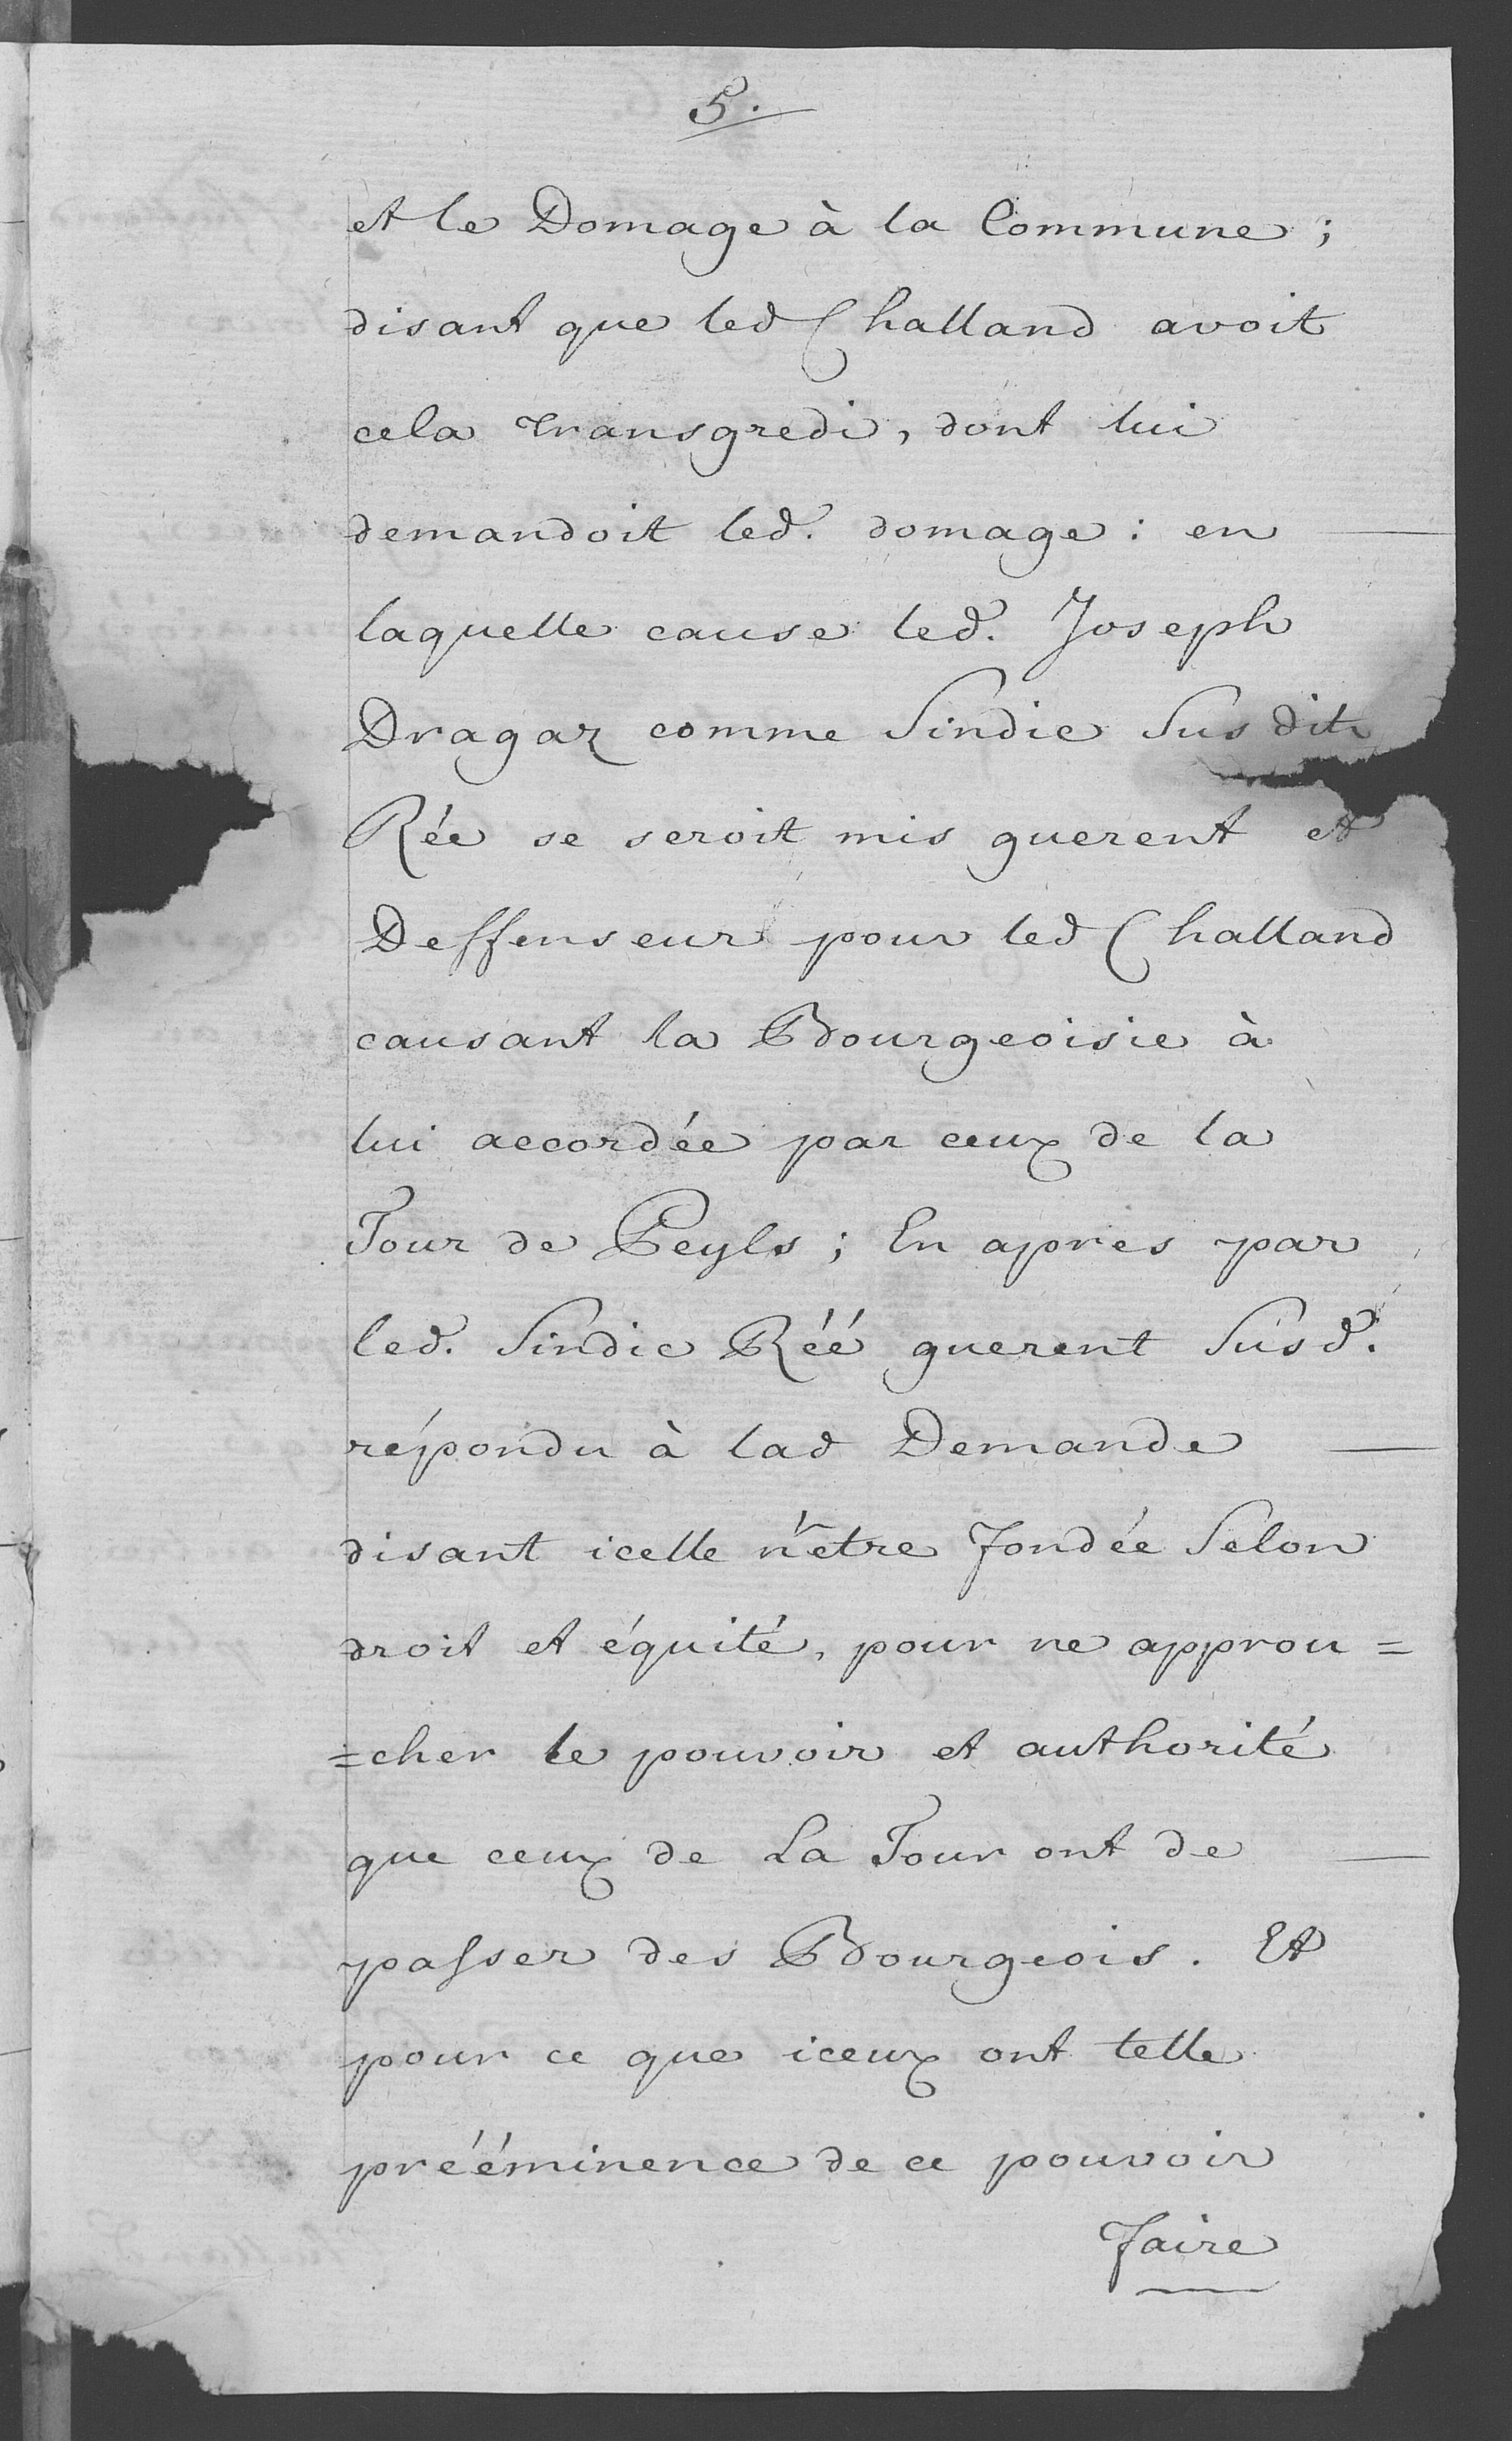 5.
et le Domage à la Commune ;
disant que led Challand avoit
cela transgredi, dont lui
demandoit led. domage : en
laquelle cause led. Joseph
Dragaz comme Sindic Susdit
Rée se seroit mis guerent et
Deffenseur pour led Challand
causant la Bourgeoisie à
lui accordée par ceux de la
Tour de Peyls ; En apres par
led. Sindic Réé guerent Susd.
répondu à lad Demande
disant icelle n'etre fondée Selon
droit et équité, pour ne approu=
=cher le pouvoir et authorité
que ceux de La Tour ont de
passer des Bourgeois. Et
pour ce que iceux ont telle
prééminence de ce pouvoir
faire